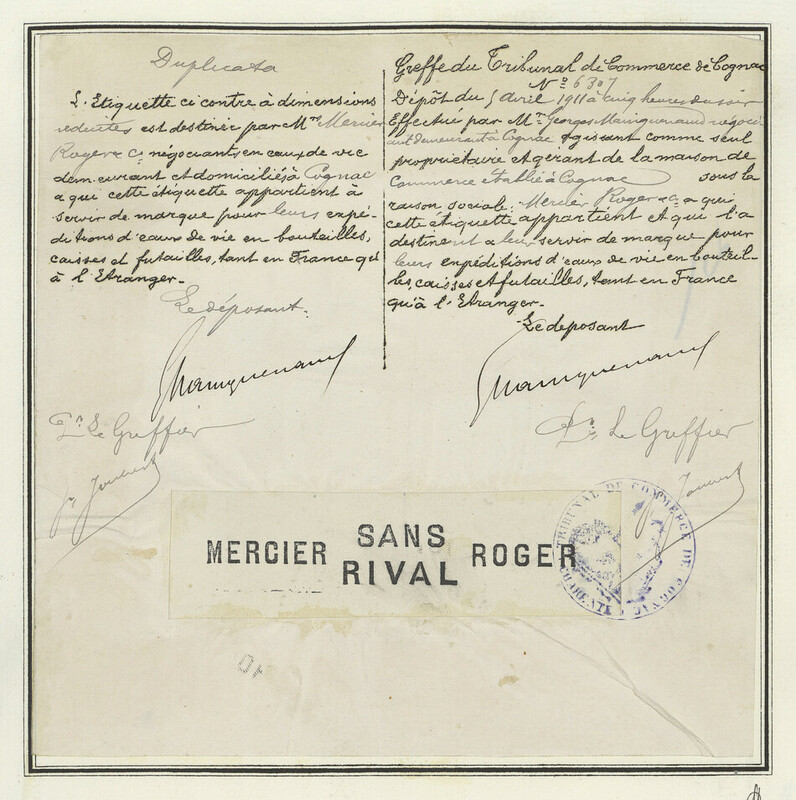 Duplicata
L'Etiquette ci contre à dimensions
reduites est destinée par Mrs Mercier
Roger & Co négociants en eaux de vie
demeurant et domiciliés à Cognac
a qui cette étiquette appartient à
servir de marque pour leurs expé-
ditions d'eaux de vie en bouteilles,
caisses et futailles, tant en France qu'
à l'Etranger.-
Le déposant.
Pr Le Greffier
Greffe du Tribunal de Commerce de Cognac
No 6307
Dépôt du 5 avril 1911 à cinq heures du soir
Effectué par Mr Georges négoci
ant demeurant à Cognac Agissant comme seul
propriétaire et gérant de la maison de
Commerce établie à Cognac sous la
raison sociale: Mercier Roger & Co a qui
cette étiquette appartient et qui l'a
destinent a leur servir de marque pour
leurs expéditions d'eaux de vie en bouteil-
les, caisses et futailles, tant en France
qu'à l'Etranger.-
Le deposant
Pr Le Greffier
MERCIER SANS RIVAL ROGER
TRIBUNAL DE COMMERCE DE COGNAC
CHARENTE